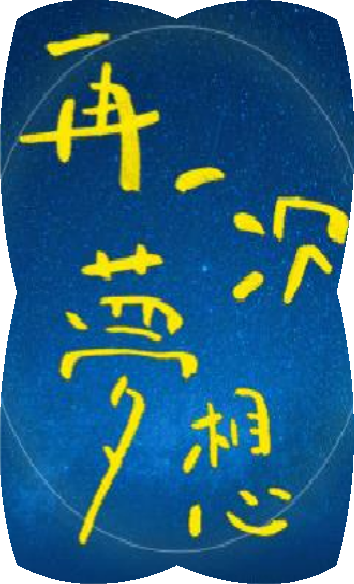 再一次
夢想